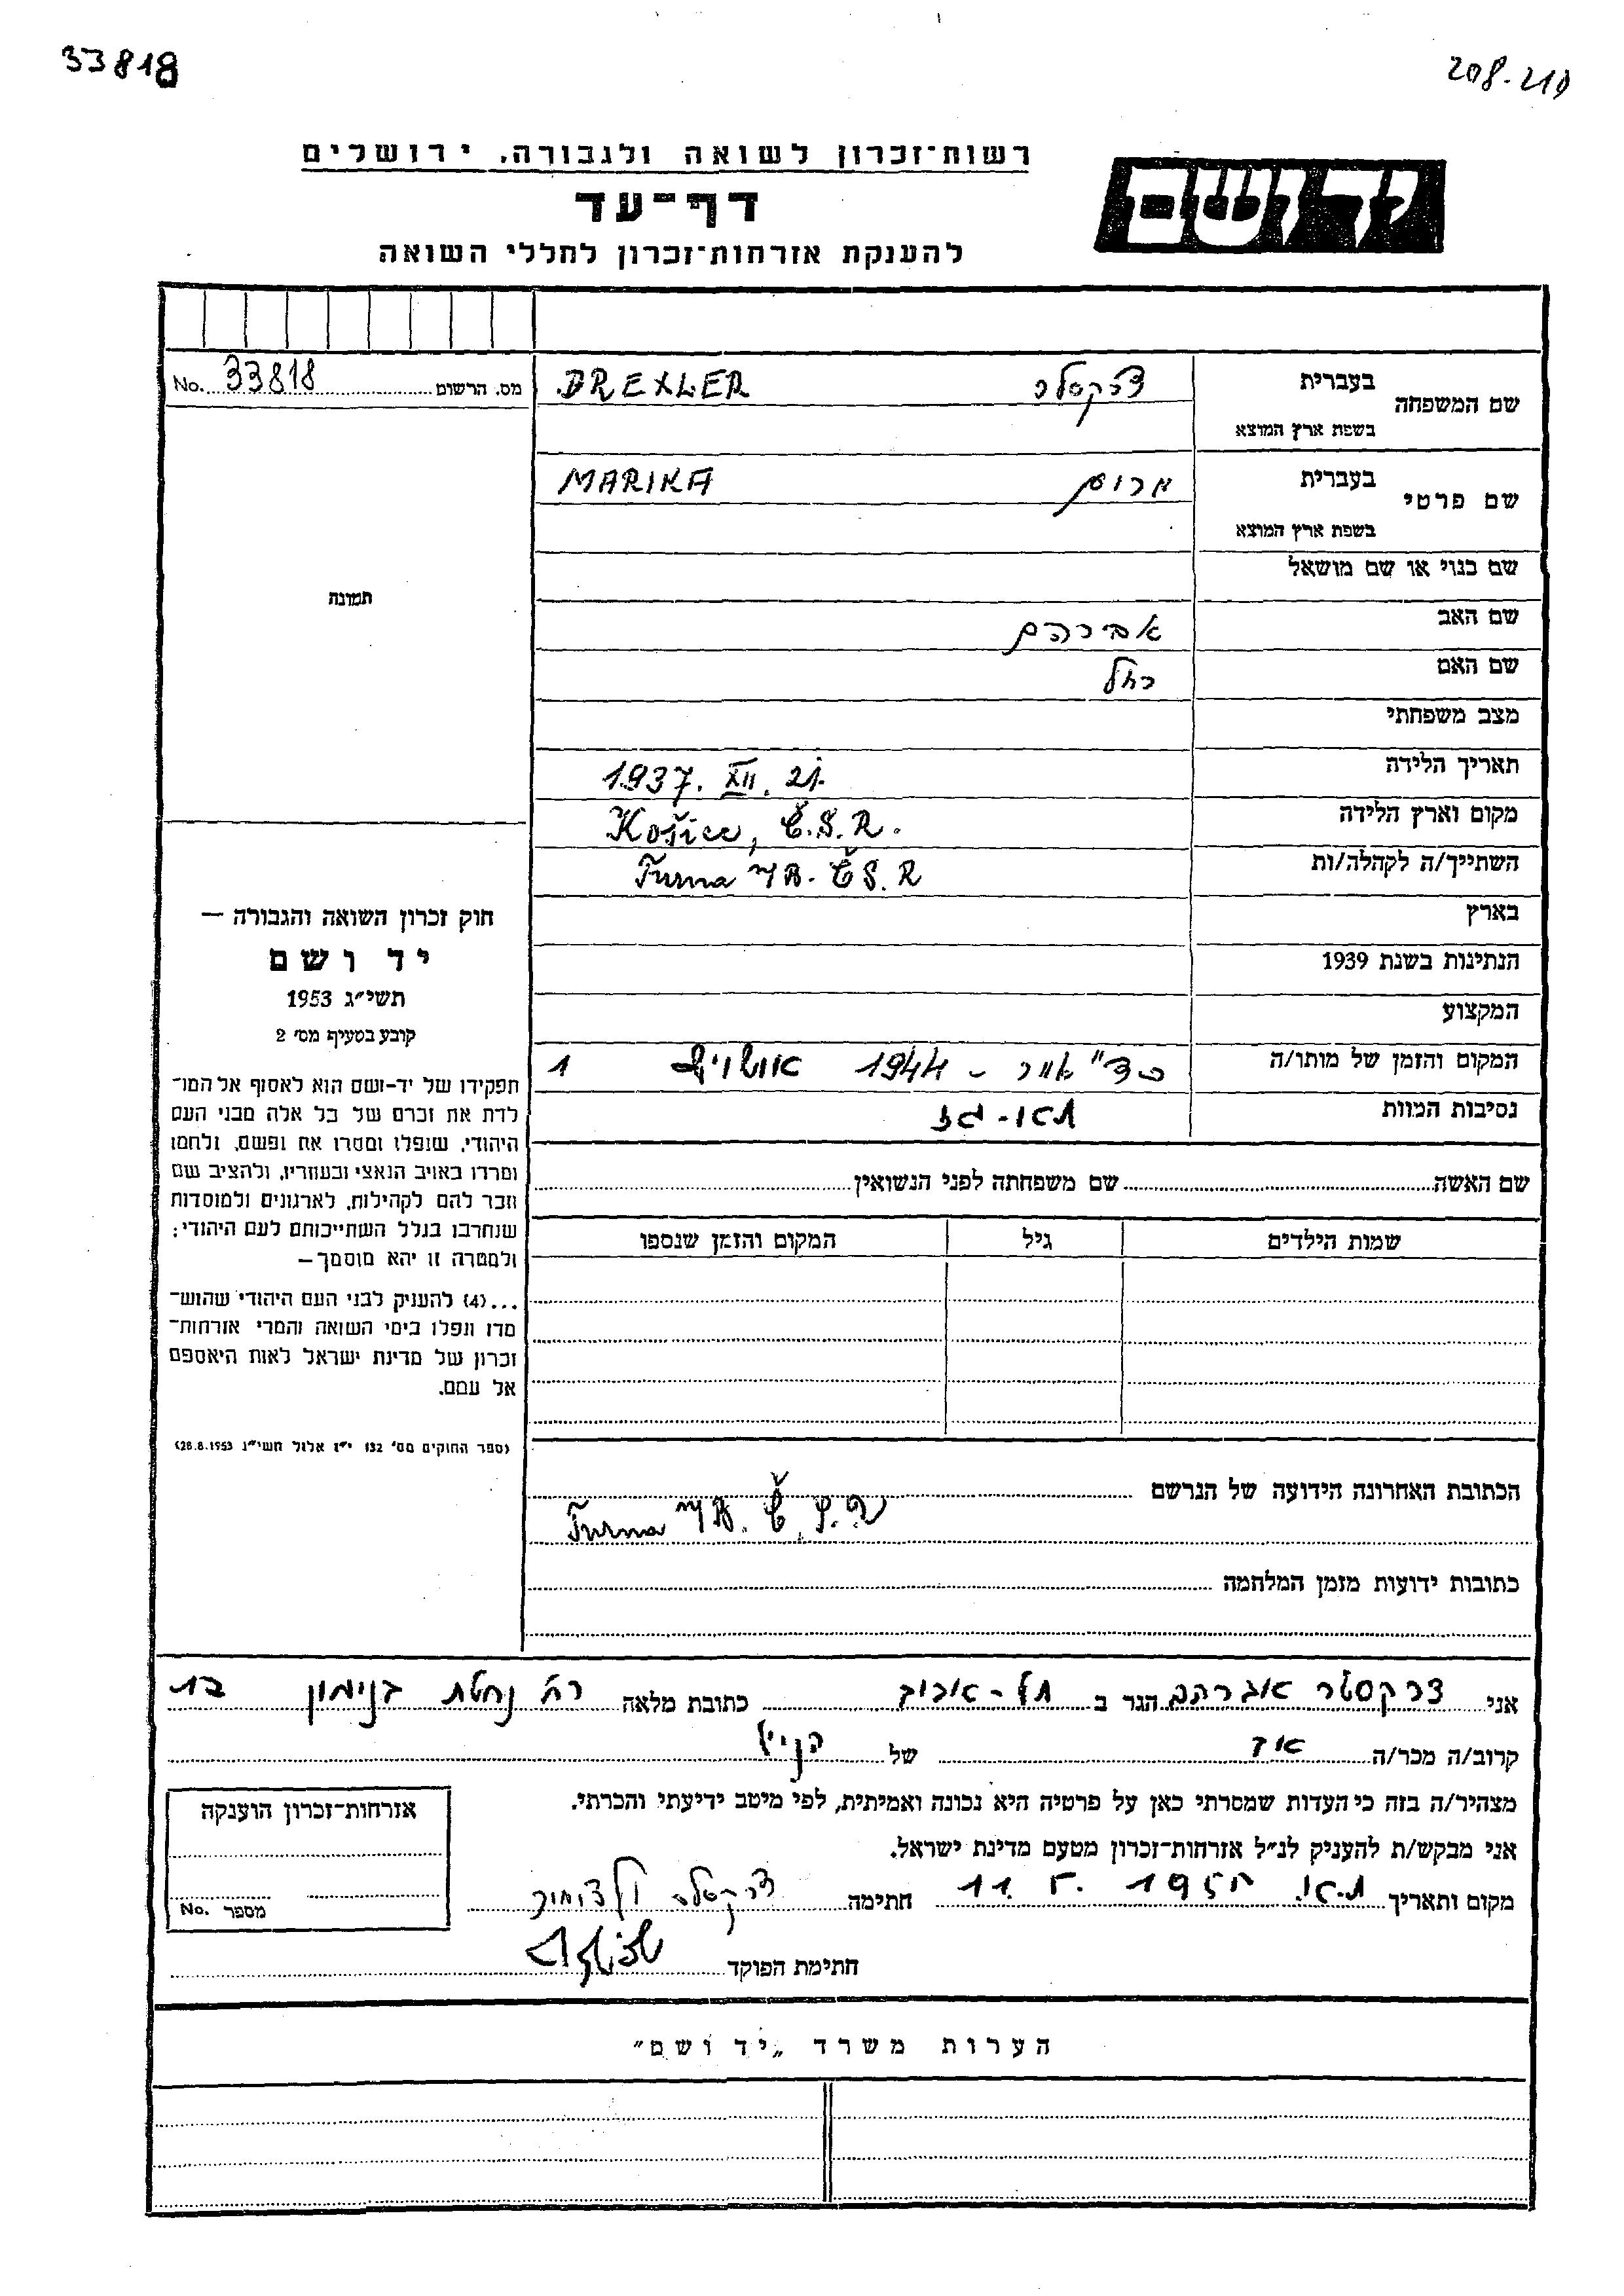 33818
208-210
רשות־זכרון לשואה ולגבורה, ירושלים
ידושם
דף־עד
להענקת אזרחות־זכרון לחללי השואה
מס. הרשום 33818 No.
תמונה
שם המשפחה
בעברית
בשפת ארץ המוצא
דרקסלר DREXLER
שם פרטי
בעברית
בשפת ארץ המוצא
מרים MARIKA
שם כנוי או שם מושאל
שם האב אברהם
שם האם רחל
מצב משפחתי
תאריך הלידה 1937. XII. 21.
מקום וארץ הלידה Košice, Č.S.R.
השתייך/ה לקהלה/ות Turna n/B. ČS.R
בארץ
הנתינות בשנת 1939
המקצוע
המקום והזמן של מותו/ה 1944 אושויץ 1
נסיבות המוות תאי-גז
חוק זכרון השואה והגבורה —
יד ושם
תשי״ג 1953
קובע בסעיף מס׳ 2
תפקידו של יד-ושם הוא לאסוף אל המו־
לדת את זכרם של כל אלה מבני העם
היהודי, שנפלו ומסרו את נפשם, נלחמו
ומרדו באויב הנאצי ובעוזריו, ולהציב שם
וזכר להם לקהילות, לארגונים ולמוסדות
שנחרבו בגלל השתייכותם לעם היהודי;
ולמטרה זו יהא מוסמך—
...(4) להעניק לבני העם היהודי שהוש־
מדו ונפלו בימי השואה והמרי אזרחות־
זכרון של מדינת ישראל לאות היאספם
אל עמם.
(ספר החוקים מס׳ 132 י״ז אלול תשי״ג 28.8.1953)
שם האשה שם משפחתה לפני הנשואין
שמות הילדים גיל המקום והזמן שנספו
הכתובת האחרונה הידועה של הנרשם
Turna n/B. Č.S.R
כתובות ידועות מזמן המלחמה
אני דרקסלר אברהם הגר ב תל-אביב כתובת מלאה רח נחלת בנימין
קרוב/ה מכר/ה של
מצהיר/ה בזה כי העדות שמסרתי כאן על פרטיה היא נכונה ואמיתית, לפי מיטב ידיעתי והכרתי.
אני מבקש/ת להעניק לנ״ל אזרחות־זכרון מטעם מדינת ישראל.
מקום ותאריך ת.א. חתימה דרקסלר
חתימת הפוקד
אזרחות־זכרון הוענקה
מספר No.
הערות משרד „יד ושם״